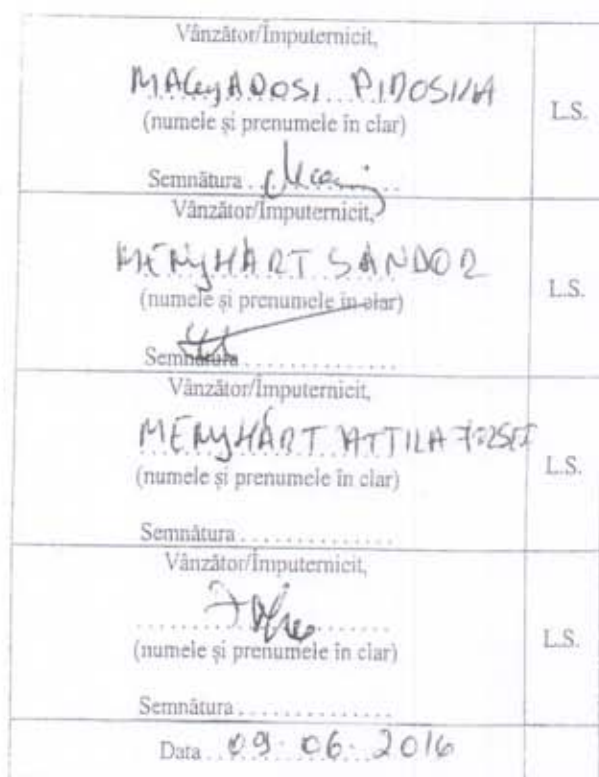 Vânzător/Împuternicit,
MAGYAROSI PIROSKA
(numele și prenumele în clar)
L.S.
Semnătura . .
Vânzător/Împuternicit,
MENYHÁRT SÁNDOR
(numele și prenumele în clar)
L.S.
Semnătura . . . . . . . . . . . . . .
Vânzător/Împuternicit,
MENYHÁRT ATTILA JOZSEF
(numele și prenumele în clar)
L.S.
Semnătura . . . . . . . . . . . . . .
Vânzător/Împuternicit,
(numele și prenumele în clar)
L.S.
Semnătura . . . . . . . . . . . . . .
Data . . 09. 06. 2016